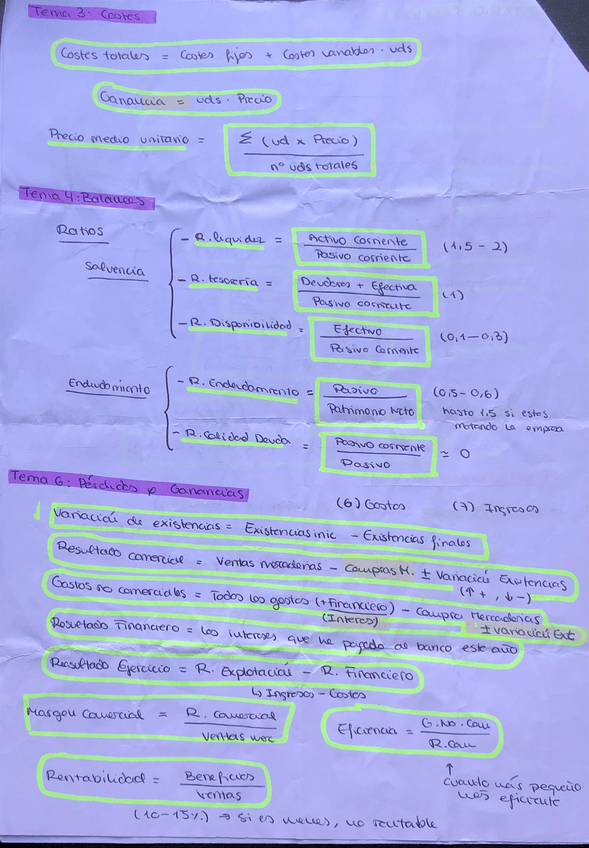 Tema 3: Costes
Costes totales = Costes fijos + Costes variables · uds
Ganancia = uds · Precio
Precio medio unitario = Σ (ud x Precio) / nº uds totales
Tema 4: Balances
Ratios
Solvencia
- R. liquidez = Activo corriente / Pasivo corriente (1,5 - 2)
- R. tesorería = Deudores + Efectivo / Pasivo corriente (1)
- R. Disponibilidad = Efectivo / Pasivo Corriente (0,1 - 0,3)
Endeudamiento
- R. Endeudamiento = Pasivo / Patrimonio Neto (0,5 - 0,6)
hasta 1,5 si estas
montando la empresa
- R. Calidad Deuda = Pasivo corriente / Pasivo ≃ 0
Tema 6: Pérdidas y Ganancias
(6) Gastos (7) Ingresos
Variación de existencias = Existencias inic - Existencias finales
Resultado comercial = Ventas mercaderías - Compras M. ± Variación Existencias
(↑ +, ↓ -)
Gastos no comerciales = Todos los gastos (+ Financiero) - Compra Mercaderías
(Interes) ± Variación Ext
Resultado Financiero = los intereses que he pagado al banco este año
Resultado Ejercicio = R. Explotación - R. Financiero
↳ Ingresos - Costos
Margen Comercial = R. Comercial / Ventas mer
Eficiencia = G. No. Com / R. Com
↑
cuanto más pequeño
más eficiente
Rentabilidad = Beneficios / Ventas
(10 - 15%) → si es menos, no rentable